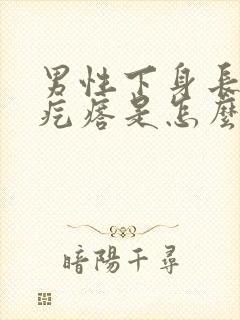 男性下身長
疙瘩是怎麼
暗陽千尋